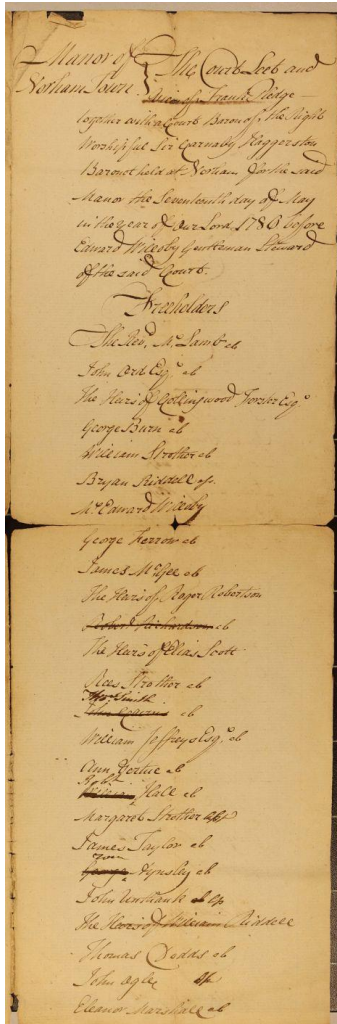 Manor of
Norham Town } The Court Leet and
View of Frank Pledge —
together with a Court Baron of the Right
Worshipful Sir Carnaby Haggerston
Baronet held at Norham for the said
Manor the Seventeenth day of May
in the year of Our Lord 1786 before
Edward Willoby Gentleman Steward
of the said Court.
Freeholders
The Revd. Mr. Lamb eb
John Ord Esqr. eb
The Heirs of Collingwood Forster Esqr.
George Burn eb
William Strother eb
Bryan Riddell
Mr. Edward Willoby
George Yerrow eb
James McGee eb
The Heirs of Roger Robertson
Robert Richardson eb
The Heirs of Elias Scott
Rees Strother eb
Thos. Smith
John eb
William Jeffreys Esqr. eb
Ann Vertue eb
Robt.
William Hall eb
Margaret Strother
James Taylor eb
George Tynsley eb
John Unthank
The Heirs of William Riddell
Thomas Dodds eb
John Ogle
Eleanor Marshall eb